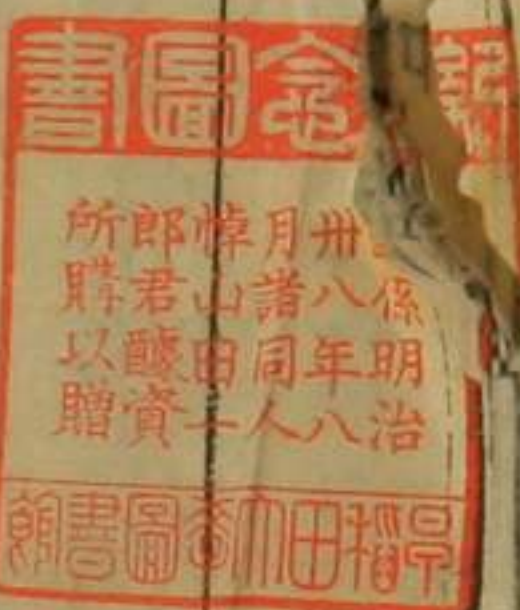 記念圖書
係明治
卅八年八
月諸同人
悼山田一
郎君醵資
所購以贈
早稻田大學圖書館